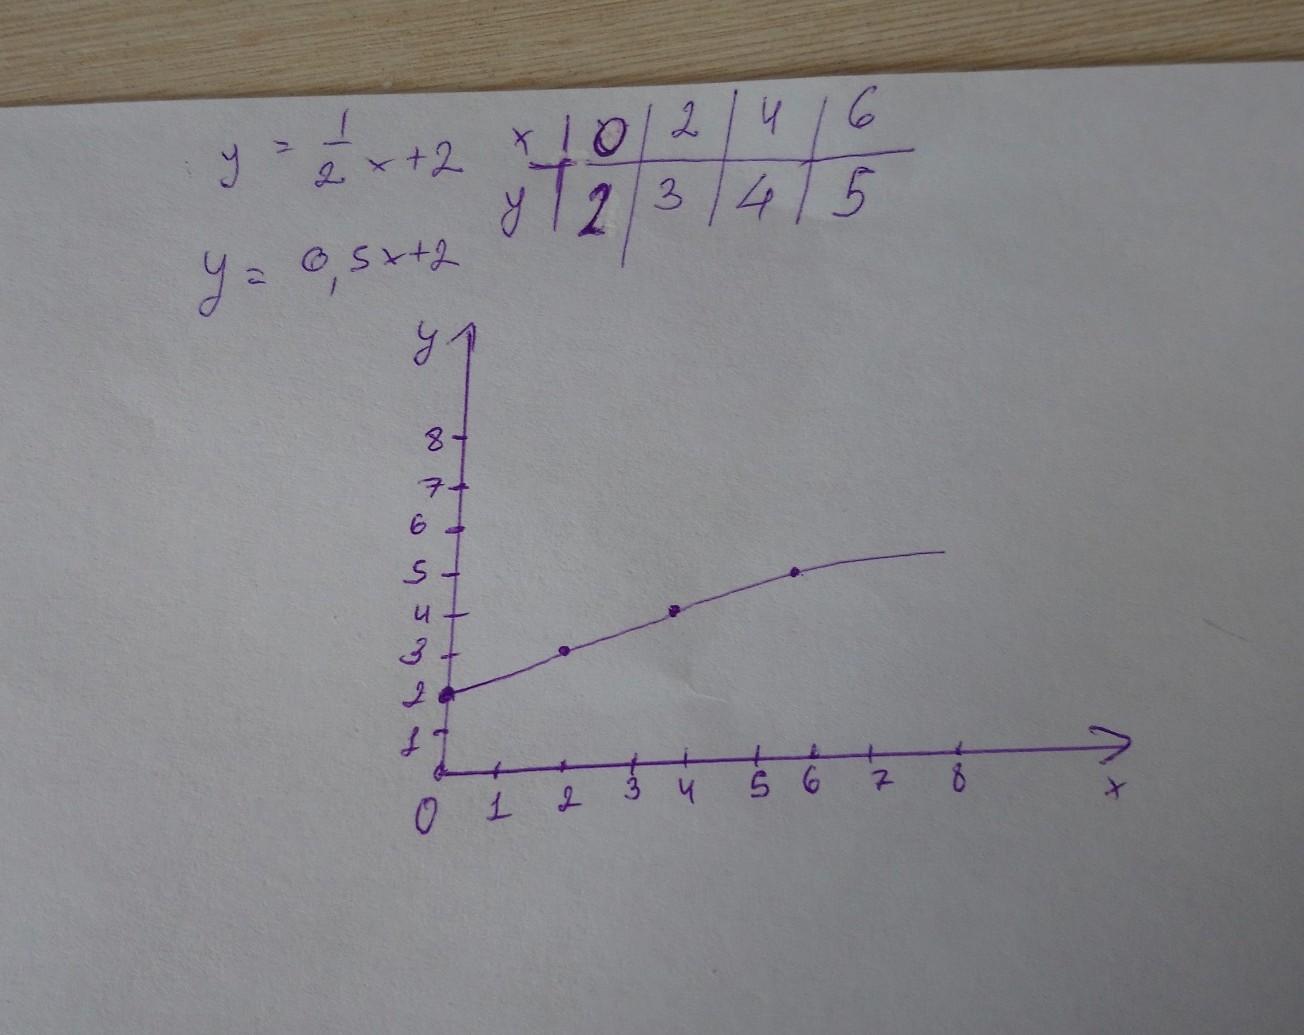 y = 1/2 x + 2
x | 0 | 2 | 4 | 6
y | 2 | 3 | 4 | 5
y = 0,5x + 2
y
8
7
6
5
4
3
2
1
0 1 2 3 4 5 6 7 8 x